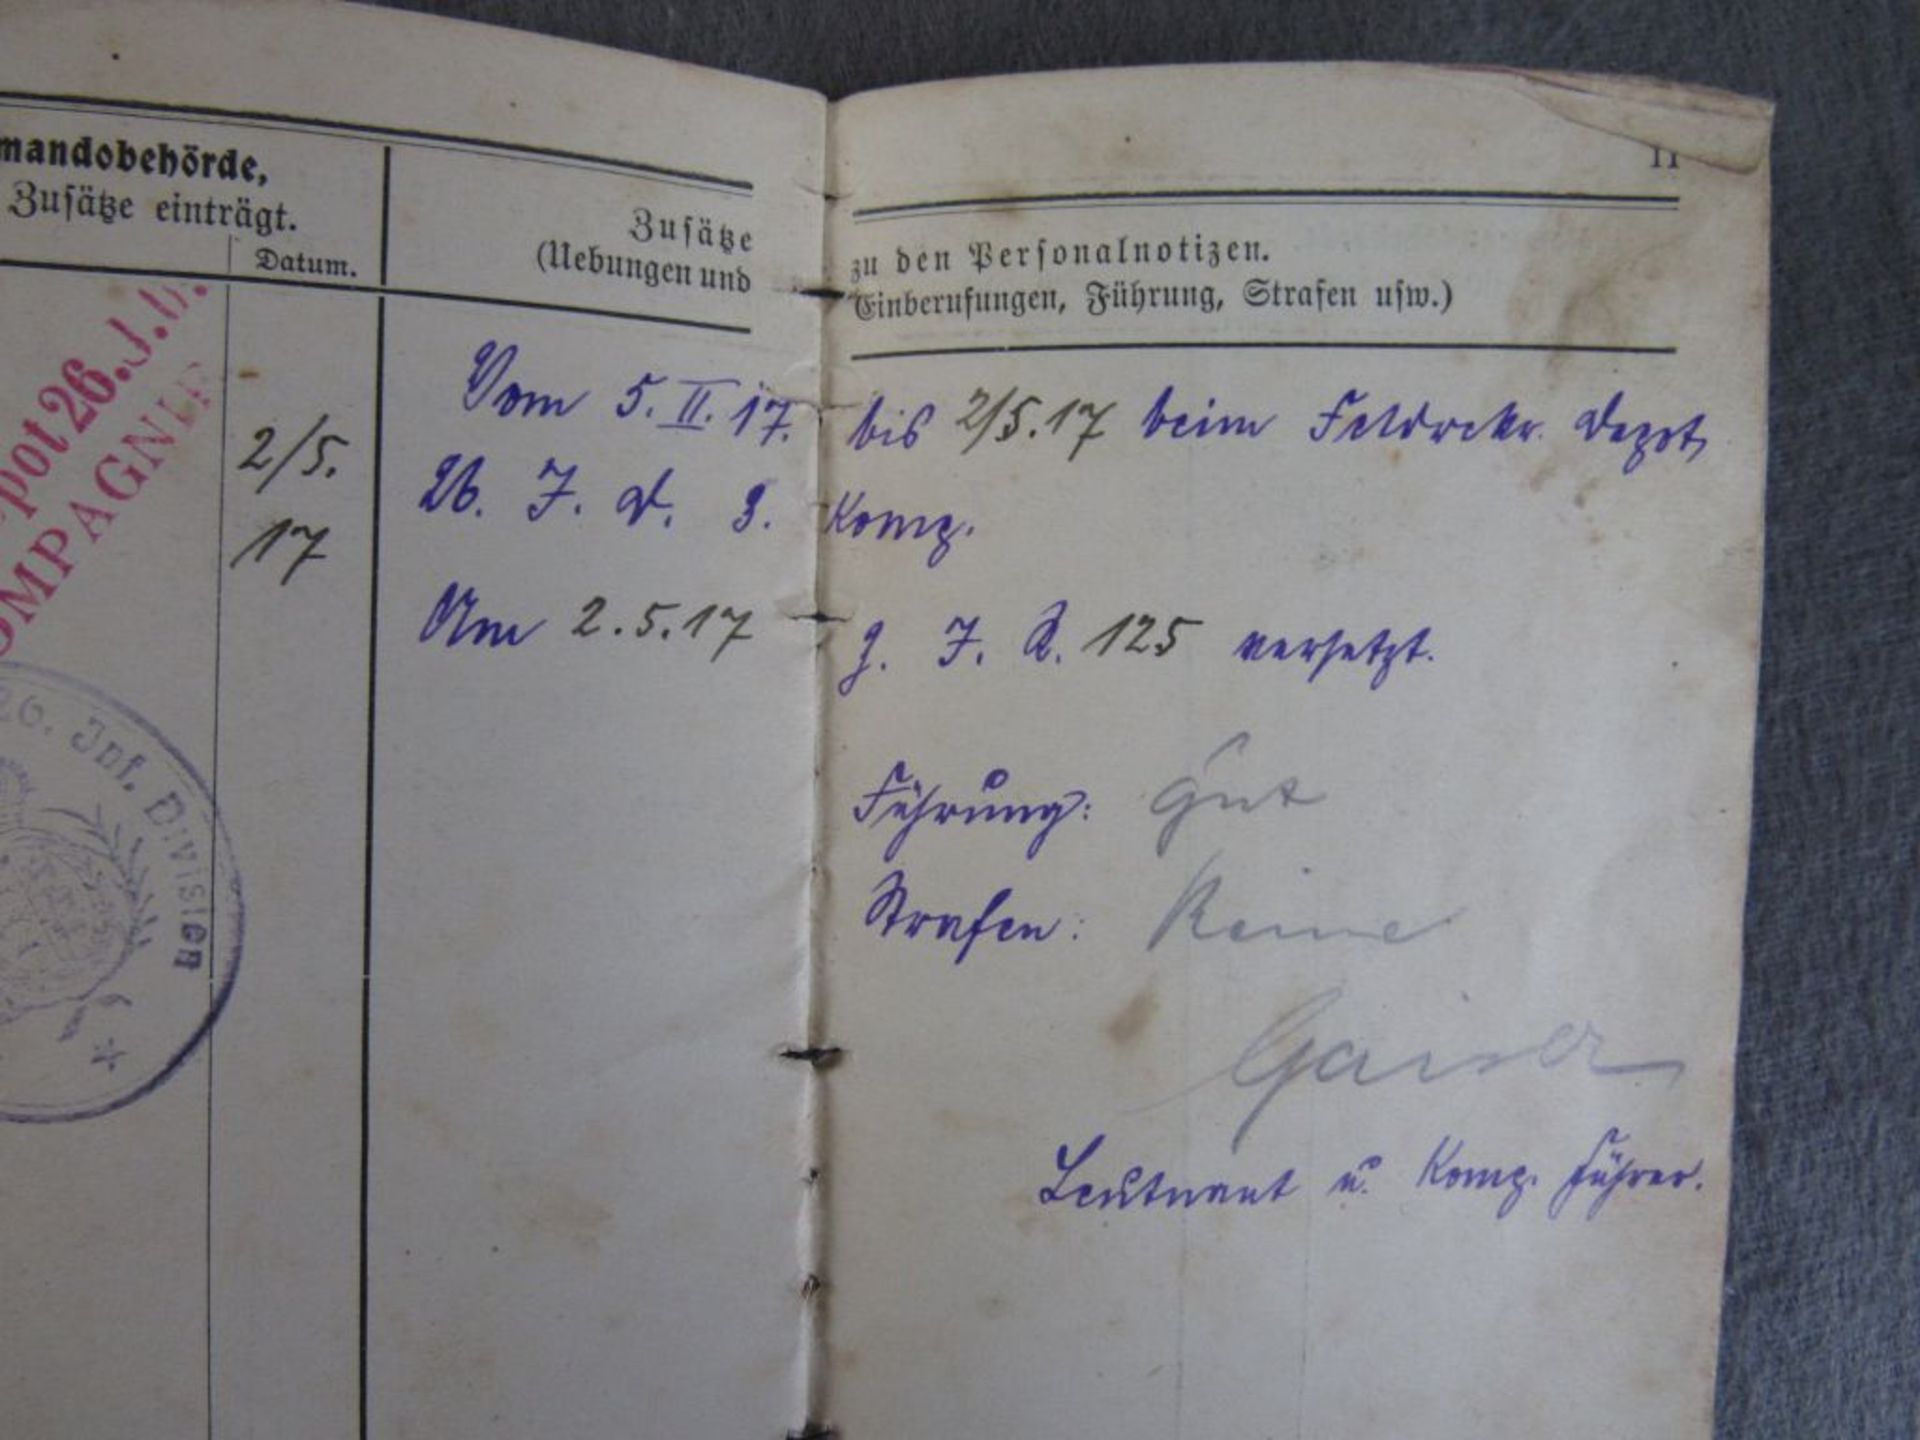 mandobehörde,
Zusätze einträgt.
Datum.
pot 26. J.D.
OMPAGNIE
2/5.
17
26. Inf. Division
Zusätze
(Uebungen und
11
zu den Personalnotizen.
Einberufungen, Führung, Strafen usw.)
Vom 5. II. 17. bis 2/5.17 beim Feldrekr. Depot
26. J. D. 3. Komp.
Am 2.5.17 z. J. R. 125 versetzt.
Führung: Gut
Strafen: Keine
Gaiser
Leutnant u. Komp. Führer.